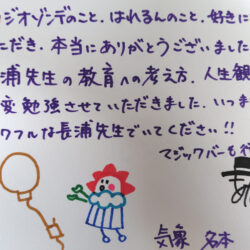 ジオゾンデのこと、はれるんのこと、好きに
ただき、本当にありがとうございました
浦先生の教育への考え方、人生観
変勉強させていただきました。いつま
ワフルな長浦先生でいてください!!
マジックバーも行
気象 名本